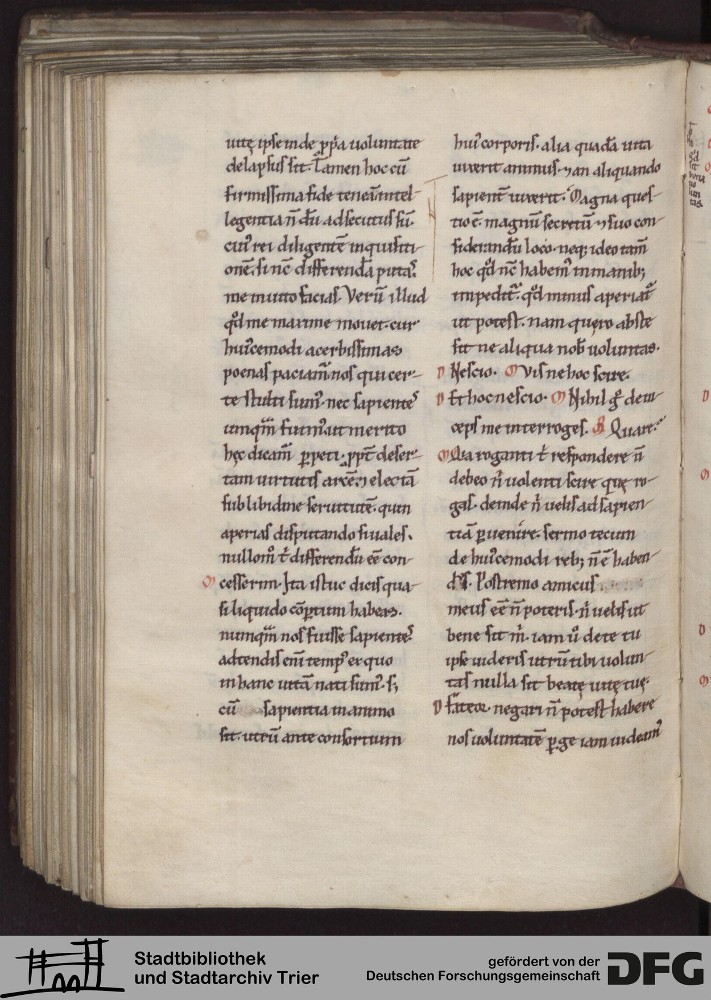 uitę ipse inde ꝓp̃a uoluntate
delapsus sit. Tamen hoc cũ
firmissima fide teneã intel-
legentia ñ dũ adsecutus sũ.
cuiꝰ rei diligentẽ inquisiti-
onẽ. si nc̃ differendã putaꝰ.
me inuito facias. Verũ illud
qđ me maxime mouet. cur
huiꝰcemodi acerbissimas
poenas paciamꝰ. nos qui cer-
te stulti sumꝰ. nec sapienteˢ
umqm̃ fuimꝰ. ut merito
hęc dicam̃ ꝑpeti. ꝓpt̃ deser-
tam uirtutis arcẽ ⁊ electã
sub libidine seruitutẽ. quin
aperias disputando si uales.
nullomꝰ t̃ differendũ eẽ con-
M cesserim. Ita istuc dicis qua-
si liquido cõꝑtum habeas.
numqm̃ nos fuisse sapienteˢ.
adtendis eni tempꝰ ex quo
in hanc uitã nati sumꝰ. s;
cũ sapientia in animo
sit. utrũ ante consortium
huiꝰ corporis. alia quadã uita
uixerit animus. ⁊ an aliquando
sapient̃ uixerit. Magna ques-
tio ẽ. magnũ secretũ ⁊ suo con-
siderandũ loco. neq; ideo tam̃
hoc qđ nc̃ habemꝰ in manib;
impeditꝰ. qđ minus aperiat̃
ut potest. nam quęro abs te
sit ne aliqua nob̃ uoluntas.
D Nescio. M Vis ne hoc scire.
D Et hoc nescio. M Nihil g̊ dein-
ceps me interroges. D Quare.
M Quia roganti t̃ respondere ñ
debeo ñ uolenti scire quę ro-
gas. deinde ñ uelis ad sapien-
tiã ꝑuenire. sermo tecum
de huiꝰcemodi reb; ñ ẽ haben-
dˢ. Postremo amicus
meus eẽ ñ poteris. ñ uelis ut
bene sit m̃. iam u̽ de te tu
ipse uideris utrũ tibi uolun-
tas nulla sit beatę uitę tuę.
D Fateor. negari ñ potest habere
nos uoluntatẽ ꝑge iam uideamꝰ
Stadtbibliothek
und Stadtarchiv Trier
gefördert von der
Deutschen Forschungsgemeinschaft
DFG